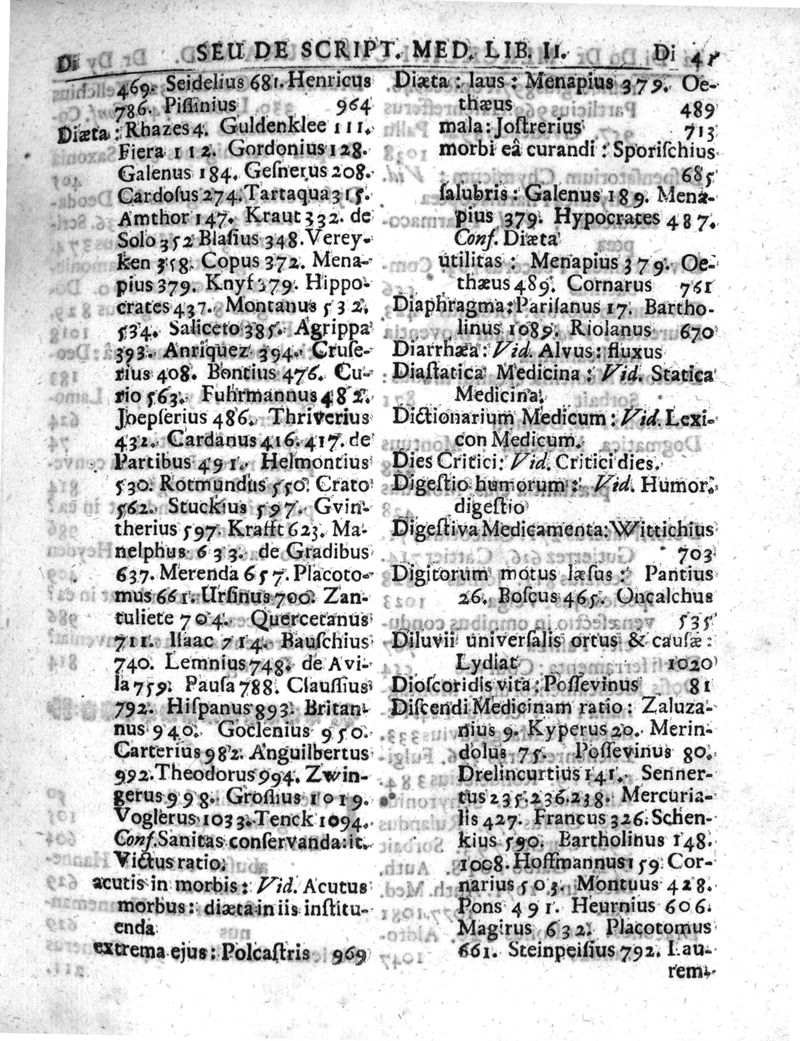 Di SEU DE SCRIPT. MED. LIB. II. Di 41
469. Seidelius 681. Henricus
786. Pissinius 964
Diæta: Rhazes 4. Guldenklee 111.
Fiera 112. Gordonius 128.
Galenus 184. Gesnerus 208.
Cardosus 274. Tartaqua 315.
Amthor 147. Kraut 332. de
Solo 352 Blasius 348. Verey-
ken 358. Copus 372. Mena-
pius 379. Knyf 379. Hippo-
crates 437. Montanus 532.
534. Saliceto 385. Agrippa
393. Anriquez 394. Cruse-
rius 408. Bontius 476. Cu-
rio 563. Fuhrmannus 482.
Joepserius 486. Thriverius
432. Cardanus 416. 417. de
Partibus 491. Helmontius
530. Rotmundus 550. Crato
562. Stuckius 597. Gvin-
therius 597. Krafft 623. Ma-
nelphus 633. de Gradibus
637. Merenda 657. Placoto-
mus 661. Ursinus 700. Zan-
tuliete 704. Quercetanus
711. Isaac 714. Bauschius
740. Lemnius 748. de Avi-
la 759. Pausa 788. Claussius
792. Hispanus 893. Britan-
nus 940. Goclenius 950.
Carterius 982. Anguilbertus
992. Theodorus 994. Zwin-
gerus 998. Grossius 1019.
Voglerus 1033. Tenck 1094.
Conf. Sanitas conservanda: it.
Victus ratio.
acutis in morbis: Vid. Acutus
morbus: diæta in iis institu-
enda
extrema ejus: Polcastris 969
Diæta: laus: Menapius 379. Oe-
thæus 489
mala: Jostrerius 713
morbi eâ curandi: Sporischius
685
salubris: Galenus 189. Mena-
pius 379. Hypocrates 487.
Conf. Diæta
utilitas: Menapius 379. Oe-
thæus 489. Cornarus 761
Diaphragma: Parisanus 17. Bartho-
linus 1089. Riolanus 670
Diarrhæa: Vid. Alvus: fluxus
Diastatica Medicina: Vid. Statica
Medicina.
Dictionarium Medicum: Vid. Lexi-
con Medicum.
Dies Critici: Vid. Critici dies.
Digestio humorum: Vid. Humor.
digestio
Digestiva Medicamenta: Wittichius
703
Digitorum motus læsus: Pantius
26. Boscus 465. Oncalchus
535
Diluvii universalis ortus & causæ:
Lydiat 1020
Dioscoridis vita: Possevinus 81
Discendi Medicinam ratio: Zaluza-
nius 9. Kyperus 20. Merin-
dolus 75. Possevinus 80.
Drelincurtius 141. Senner-
tus 235. 236. 238. Mercuria-
lis 427. Francus 326. Schen-
kius 590. Bartholinus 148.
1008. Hoffmannus 159 Cor-
narius 503. Montuus 428.
Pons 491. Heurnius 606.
Magirus 632. Placotomus
661. Steinpeisius 792. Lau-
rem-